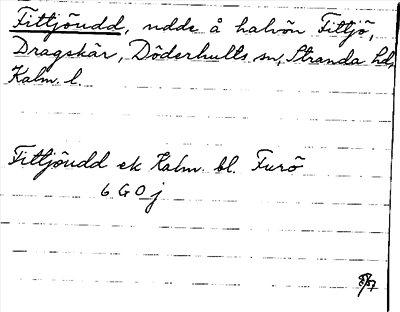 Fittjöudd, udde å halvön Fittjö,
Dragskär, Döderhults sn, Stranda hd,
Kalm. l.
Fittjöudd ek Kalm. bl. Furö
6 G 0 j